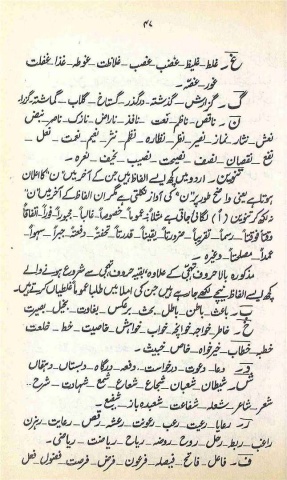 ۴۷
غ ۔ غلط ۔ غلیظ ۔ غضب ۔ غصب ۔ غلاظت ۔ غوطہ ۔ غذا ۔ غفلت
غور ۔ غصّہ ۔
گ ۔ گزارش ۔ گذشتہ ۔ درگذر ۔ گستاخ ۔ گلاب ۔ گماشتہ ۔ گزرا
ن ۔ ناقص ۔ ناظم ۔ نعت ۔ نافذ ۔ ناراض ۔ نازک ۔ ناصر ۔ نبض
نعش ۔ نثار ۔ نماز ۔ نصیر ۔ نظر ۔ نظارہ ۔ نظم ۔ نثر ۔ نعیم ۔ نعت ۔ نعل ۔
نفع ۔ نقصان ۔ نصف ۔ نصیحت ۔ نصیب ۔ نحیف ۔ نعرہ ۔
تنوین ۔ اردو میں کچھ ایسے الفاظ ہیں جن کے آخر میں "ن" کا اعلان
ہوتا ہے یعنی واضح طور پر "ن" کی آواز نکلتی ہے مگر ان الفاظ کے آخر میں "ن"
نہ لکھ کر تنوین (اً) لگائی جاتی ہے مثلاً: عموماً ۔ خصوصاً ۔ غالباً ۔ مجبوراً ۔ فوراً ۔ اتفاقاً
وقتاً فوقتاً ۔ رسماً ۔ تقریباً ۔ ضرورتاً ۔ یقیناً ۔ قدرتاً ۔ تحفتہً ۔ دفعتہً ۔ جبراً ۔ سہواً ۔
عمداً ۔ مصلحتاً ۔ وغیرہ ۔
مذکورہ بالا حروف تہجی کے علاوہ بقیہ حروف تہجی سے شروع ہونے والے
کچھ ایسے الفاظ نیچے لکھے جا رہے ہیں جن کی املا میں طلبا عموماً غلطیاں کرتے ہیں ۔
ب ۔ باعث ۔ باطن ۔ باطل ۔ بحث ۔ برعکس ۔ بغاوت ۔ بخیل ۔ بصیرت
خ ۔ خاطر ۔ خواجہ ۔ خوانچہ ۔ خواب ۔ خواہش ۔ خاصیت ۔ خط ۔ خلعت
خطبہ ۔ خطاب ۔ خیرخواہ ۔ خاص ۔ خبیث ۔
د ۔ دعا ۔ دعوت ۔ درخواست ۔ دفعہ ۔ درگاہ ۔ دستاں ۔ دہقاں
ش ۔ شیطان ۔ شعبان ۔ شجاع ۔ شعاع ۔ شمع ۔ شہادت ۔ شرح ۔۔
شعر ۔ شاعر ۔ شعلہ ۔ شفاعت ۔ شعبدہ باز ۔ شفیع ۔
ر ۔ رعایا ۔ رعیت ۔ رعب ۔ رعونت ۔ رعشہ ۔ رقص ۔ رعایت ۔ رہزن
راغب ۔ ربط ۔ رحل ۔ روح ۔ روضہ ۔ ریاح ۔ ریاضت ۔ ریاضی ۔
ف ۔ فاعل ۔ فاتح ۔ فیصلہ ۔ فرعون ۔ فرض ۔ فرصت ۔ فضول ۔ فعل